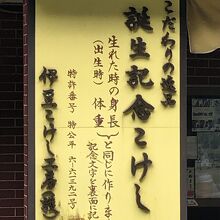 こだわりの逸品
誕生記念こけし
生れた時の身長
(出生時) 体重
と同じに作りま
記念文字を裏面に記
特許番号 特公平 六-六三九二号
伊豆こけし工房